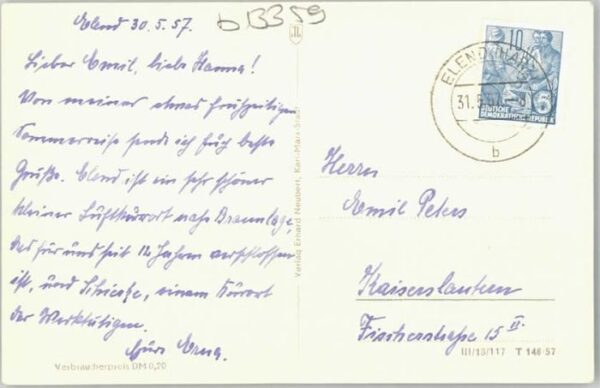 Elend 30.5.57.
b1339
Lieber Emil, liebe Hanna!
Von meiner etwas frühzeitigen
Sommerreise sende ich Euch beste
Grüße. Elend ist ein sehr schöner
kleiner Luftkurort nahe Braunlage,
das für uns seit 12 Jahren verschlossen
ist, und Schierke, einem Kurort
der Werktätigen.
Eure Erna.
Verbraucherpreis DM 0,20
Verlag Erhard Neubert, Karl-Marx-Stadt
10
5
DEUTSCHE
DEMOKRATISCHE REPUBLIK
ELEND (HARZ)
31.5.57
b
Herrn
Emil Peters
Kaiserslautern
Fischerstraße 15 II
III/18/117 T 146/57